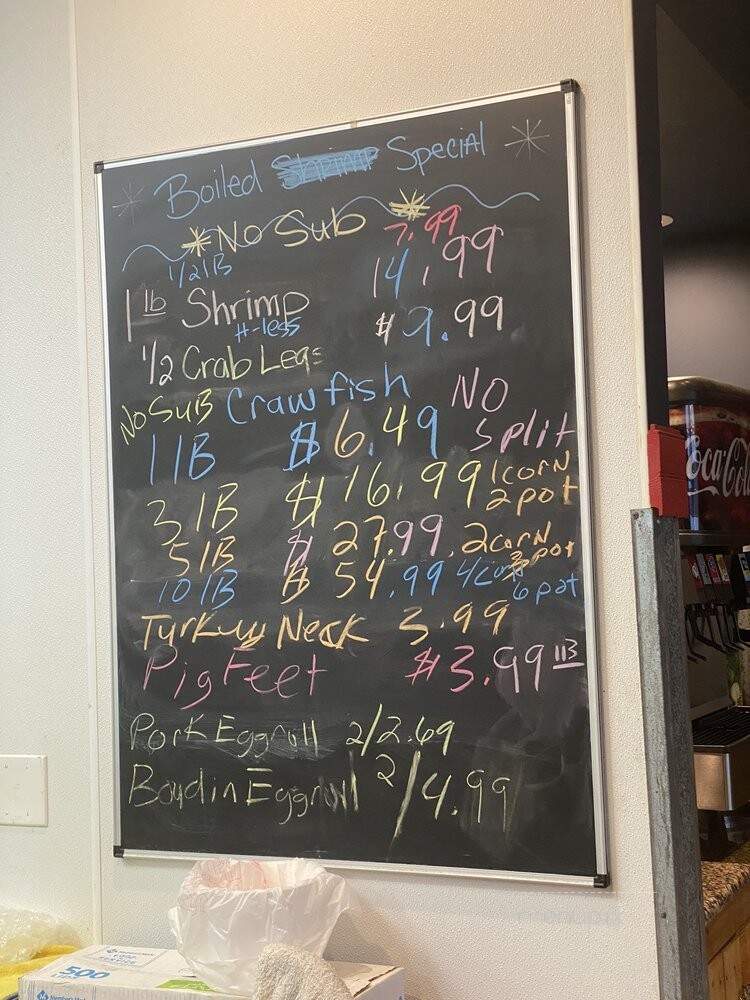 Boiled Special
No Sub 7.99
1/2 lB
1 lb Shrimp 14.99
H-less
1/2 Crab Legs $9.99
No SuB Crawfish NO Split
1 lB $6.49
3 lB $16.99 1corn 2pot
5 lB $27.99 2corn 3pot
10 lB $54.99 4/corn 6 pot
Turkuy Neck 3.99
Pig Feet $3.99
Pork Eggroll 2/2.69
Boudin Eggroll 2/4.99
Coca-Cola
500